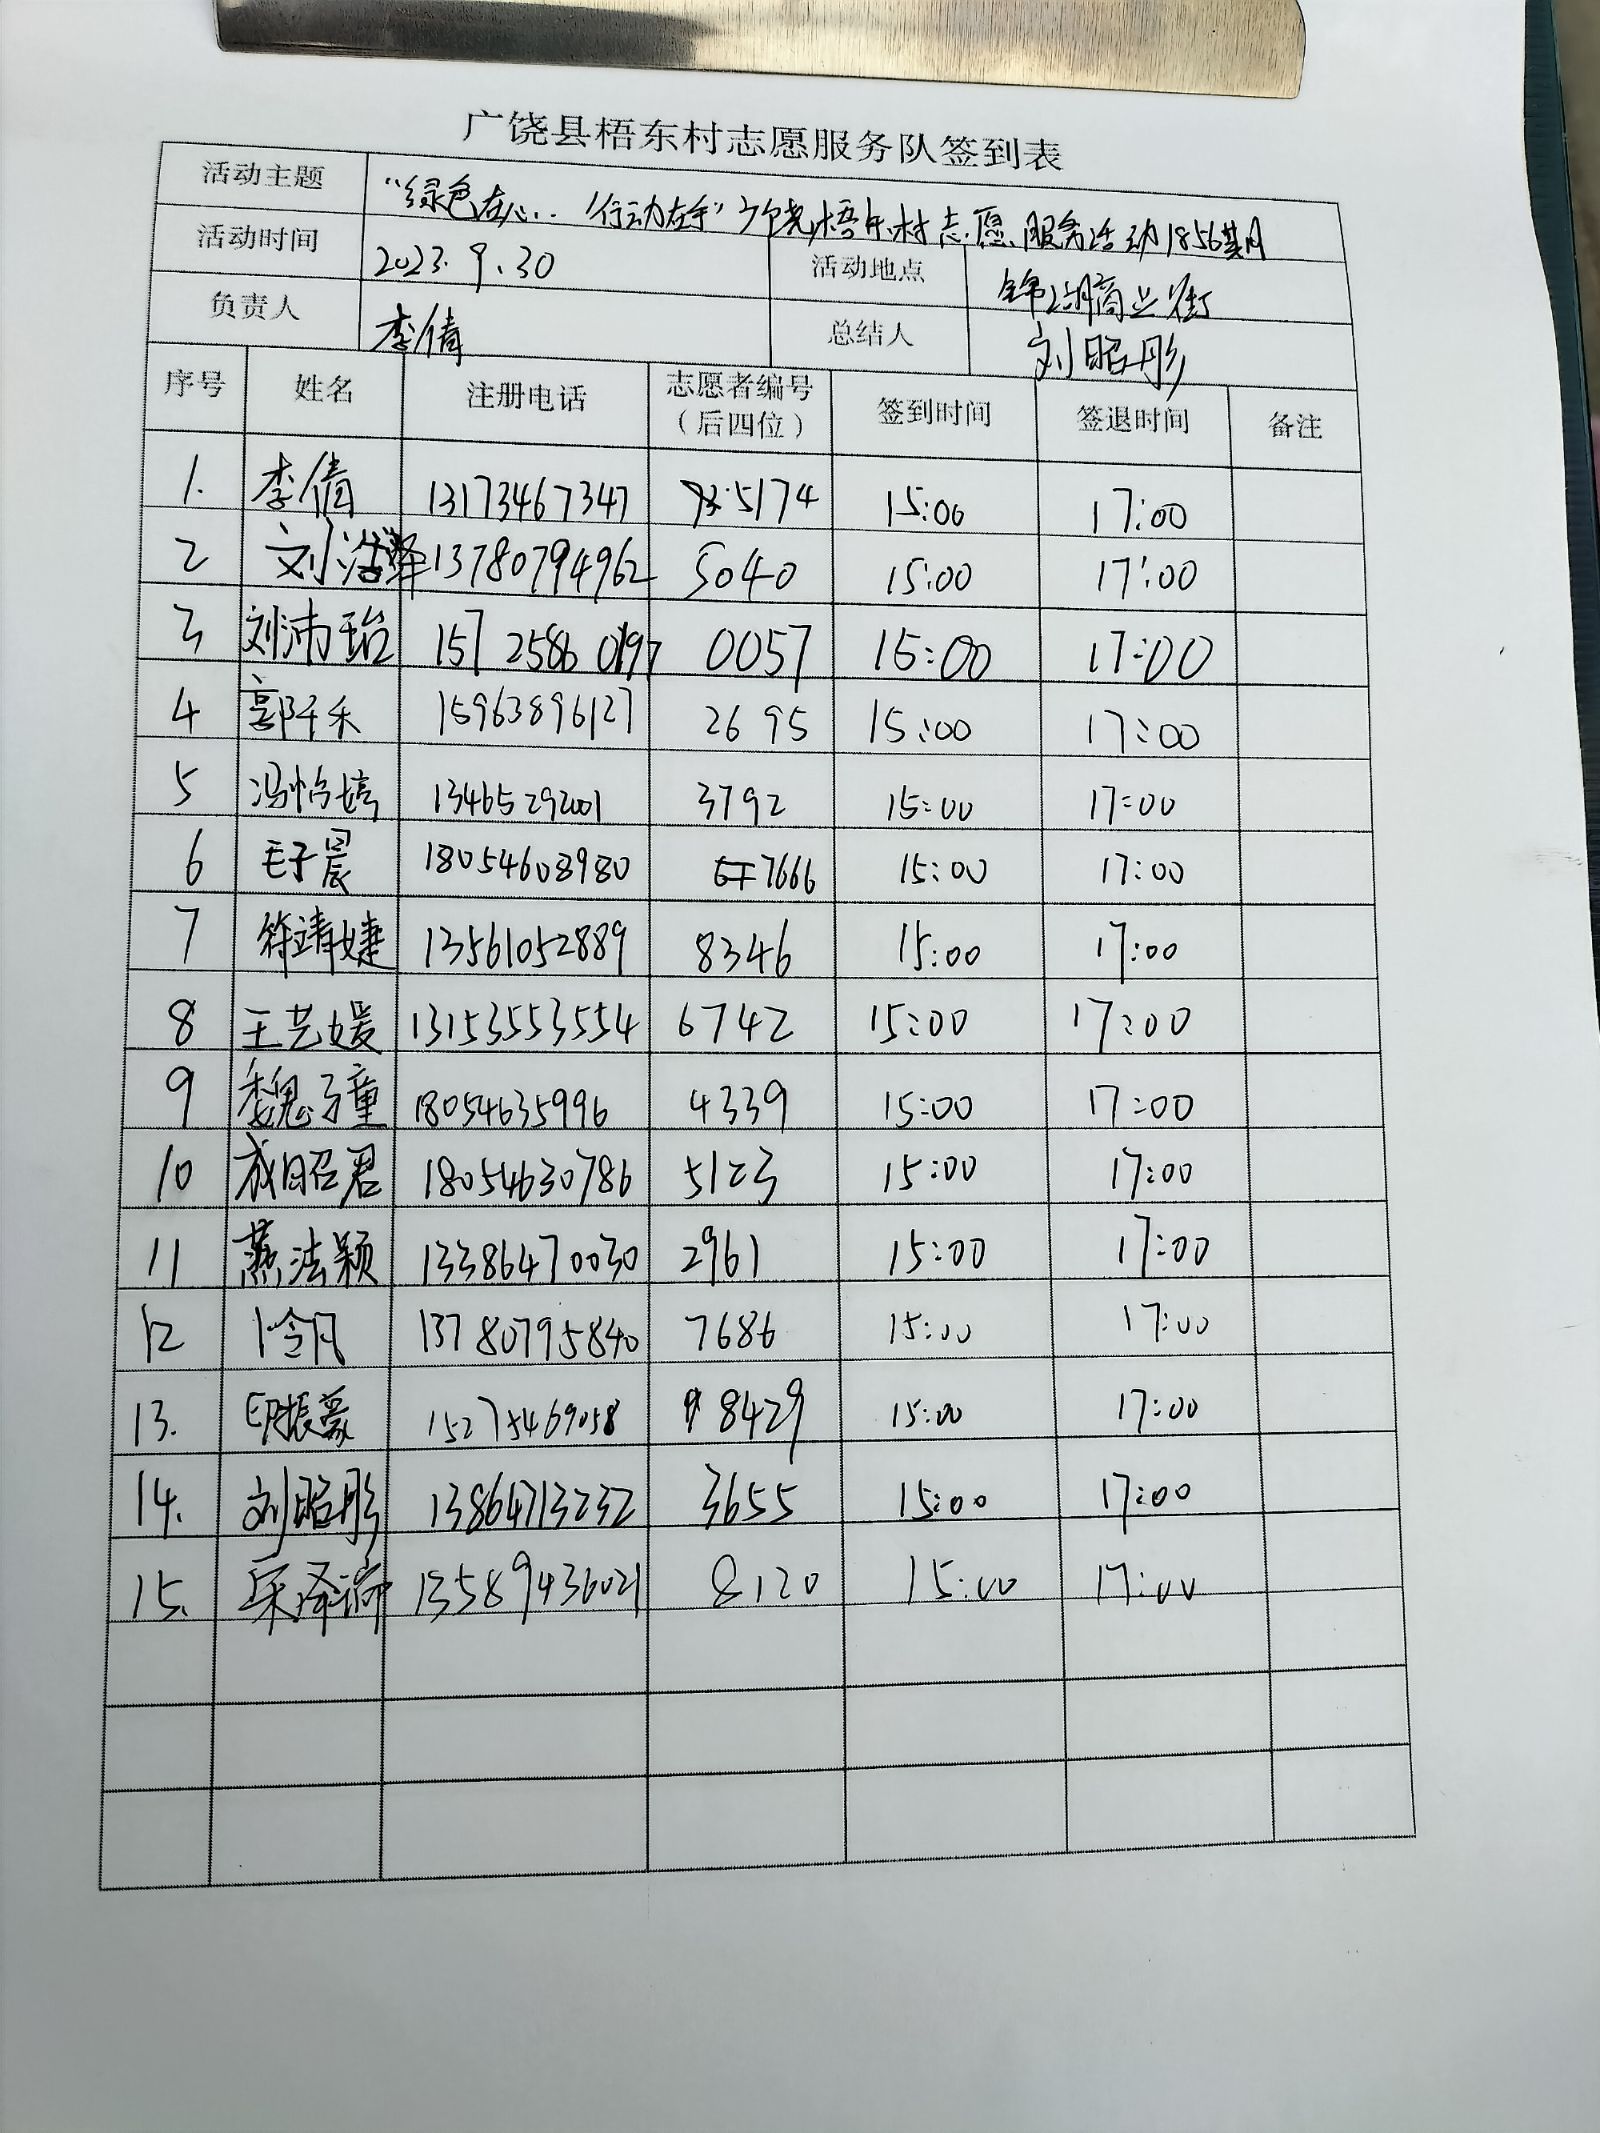 广饶县梧东村志愿服务队签到表
活动主题 “绿色在心.. 行动在手”广饶梧东村志愿服务活动1856期
活动时间 2023.9.30 活动地点 锦湖商业街
负责人 李倩 总结人 刘昭彤
序号 姓名 注册电话 志愿者编号（后四位） 签到时间 签退时间 备注
1. 李倩 13173467347 5174 15:00 17:00
2 刘浩泽 13780794962 5040 15:00 17:00
3 刘沛珆 15725860197 0057 15:00 17:00
4 郭千禾 15963896127 2695 15:00 17:00
5 冯怡婷 13465292001 3792 15:00 17:00
6 毛子晨 18054608980 7666 15:00 17:00
7 徐靖婕 13561052889 8346 15:00 17:00
8 王艺媛 13153553554 6742 15:00 17:00
9 魏子童 18054635996 4339 15:00 17:00
10 成昭君 18054630786 5123 15:00 17:00
11 燕法颖 13386470030 2961 15:00 17:00
12 13780795840 7686 15:00 17:00
13. 15275469058 8429 15:00 17:00
14. 刘昭彤 13864713232 3655 15:00 17:00
15. 13589436021 8120 15:00 17:00